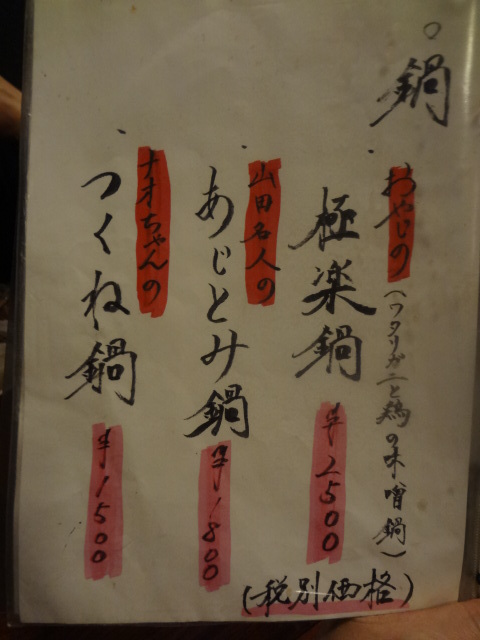 鍋
おやじの
(ワタリガニと鶏の味噌鍋)
極楽鍋
¥2500
山田名人の
あじとみ鍋
¥1800
ナオちゃんの
つくね鍋
¥1500
(税別価格)